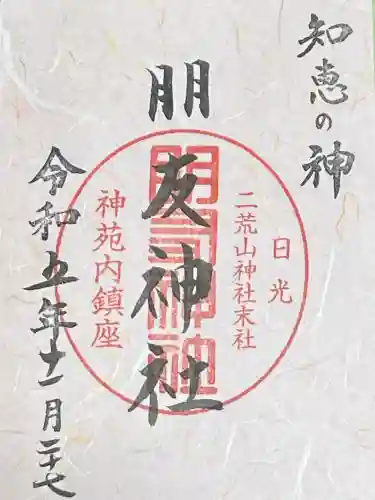 知恵の神
朋友神社
日光
二荒山神社末社
神苑内鎮座
朋友神社
令和五年十一月二十七